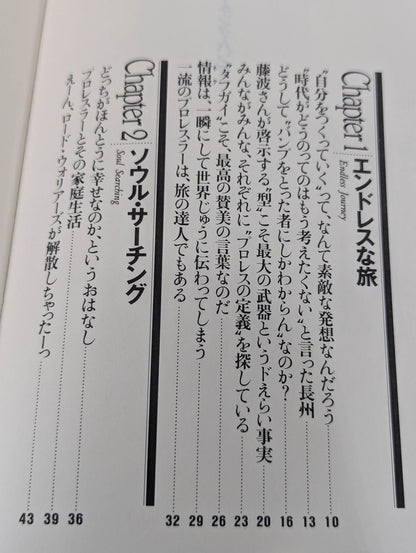 Chapter 1 エンドレスな旅
Endless Journey
“自分をつくっていく”って、なんて素敵な発想なんだろう 10
“時代がどうのってのはもう考えたくない”と言った長州 13
どうして“バンプをとった者にしかわからん”なのか? 16
藤波さんが啓示する“型”こそ最大の武器というドえらい事実 20
みんながみんな、それぞれに“プロレスの定義”を探している 23
“タフガイ”こそ、最高の賛美の言葉なのだ 26
情報は、一瞬にして世界じゅうに伝わってしまう 29
一流のプロレスラーは、旅の達人でもある 32
Chapter 2 ソウル・サーチング
Soul Searching
どっちがほんとうに幸せなのか、というおはなし 36
プロレスラーとその家庭生活 39
えーん、ロード・ウォリアーズが解散しちゃったーっ 43